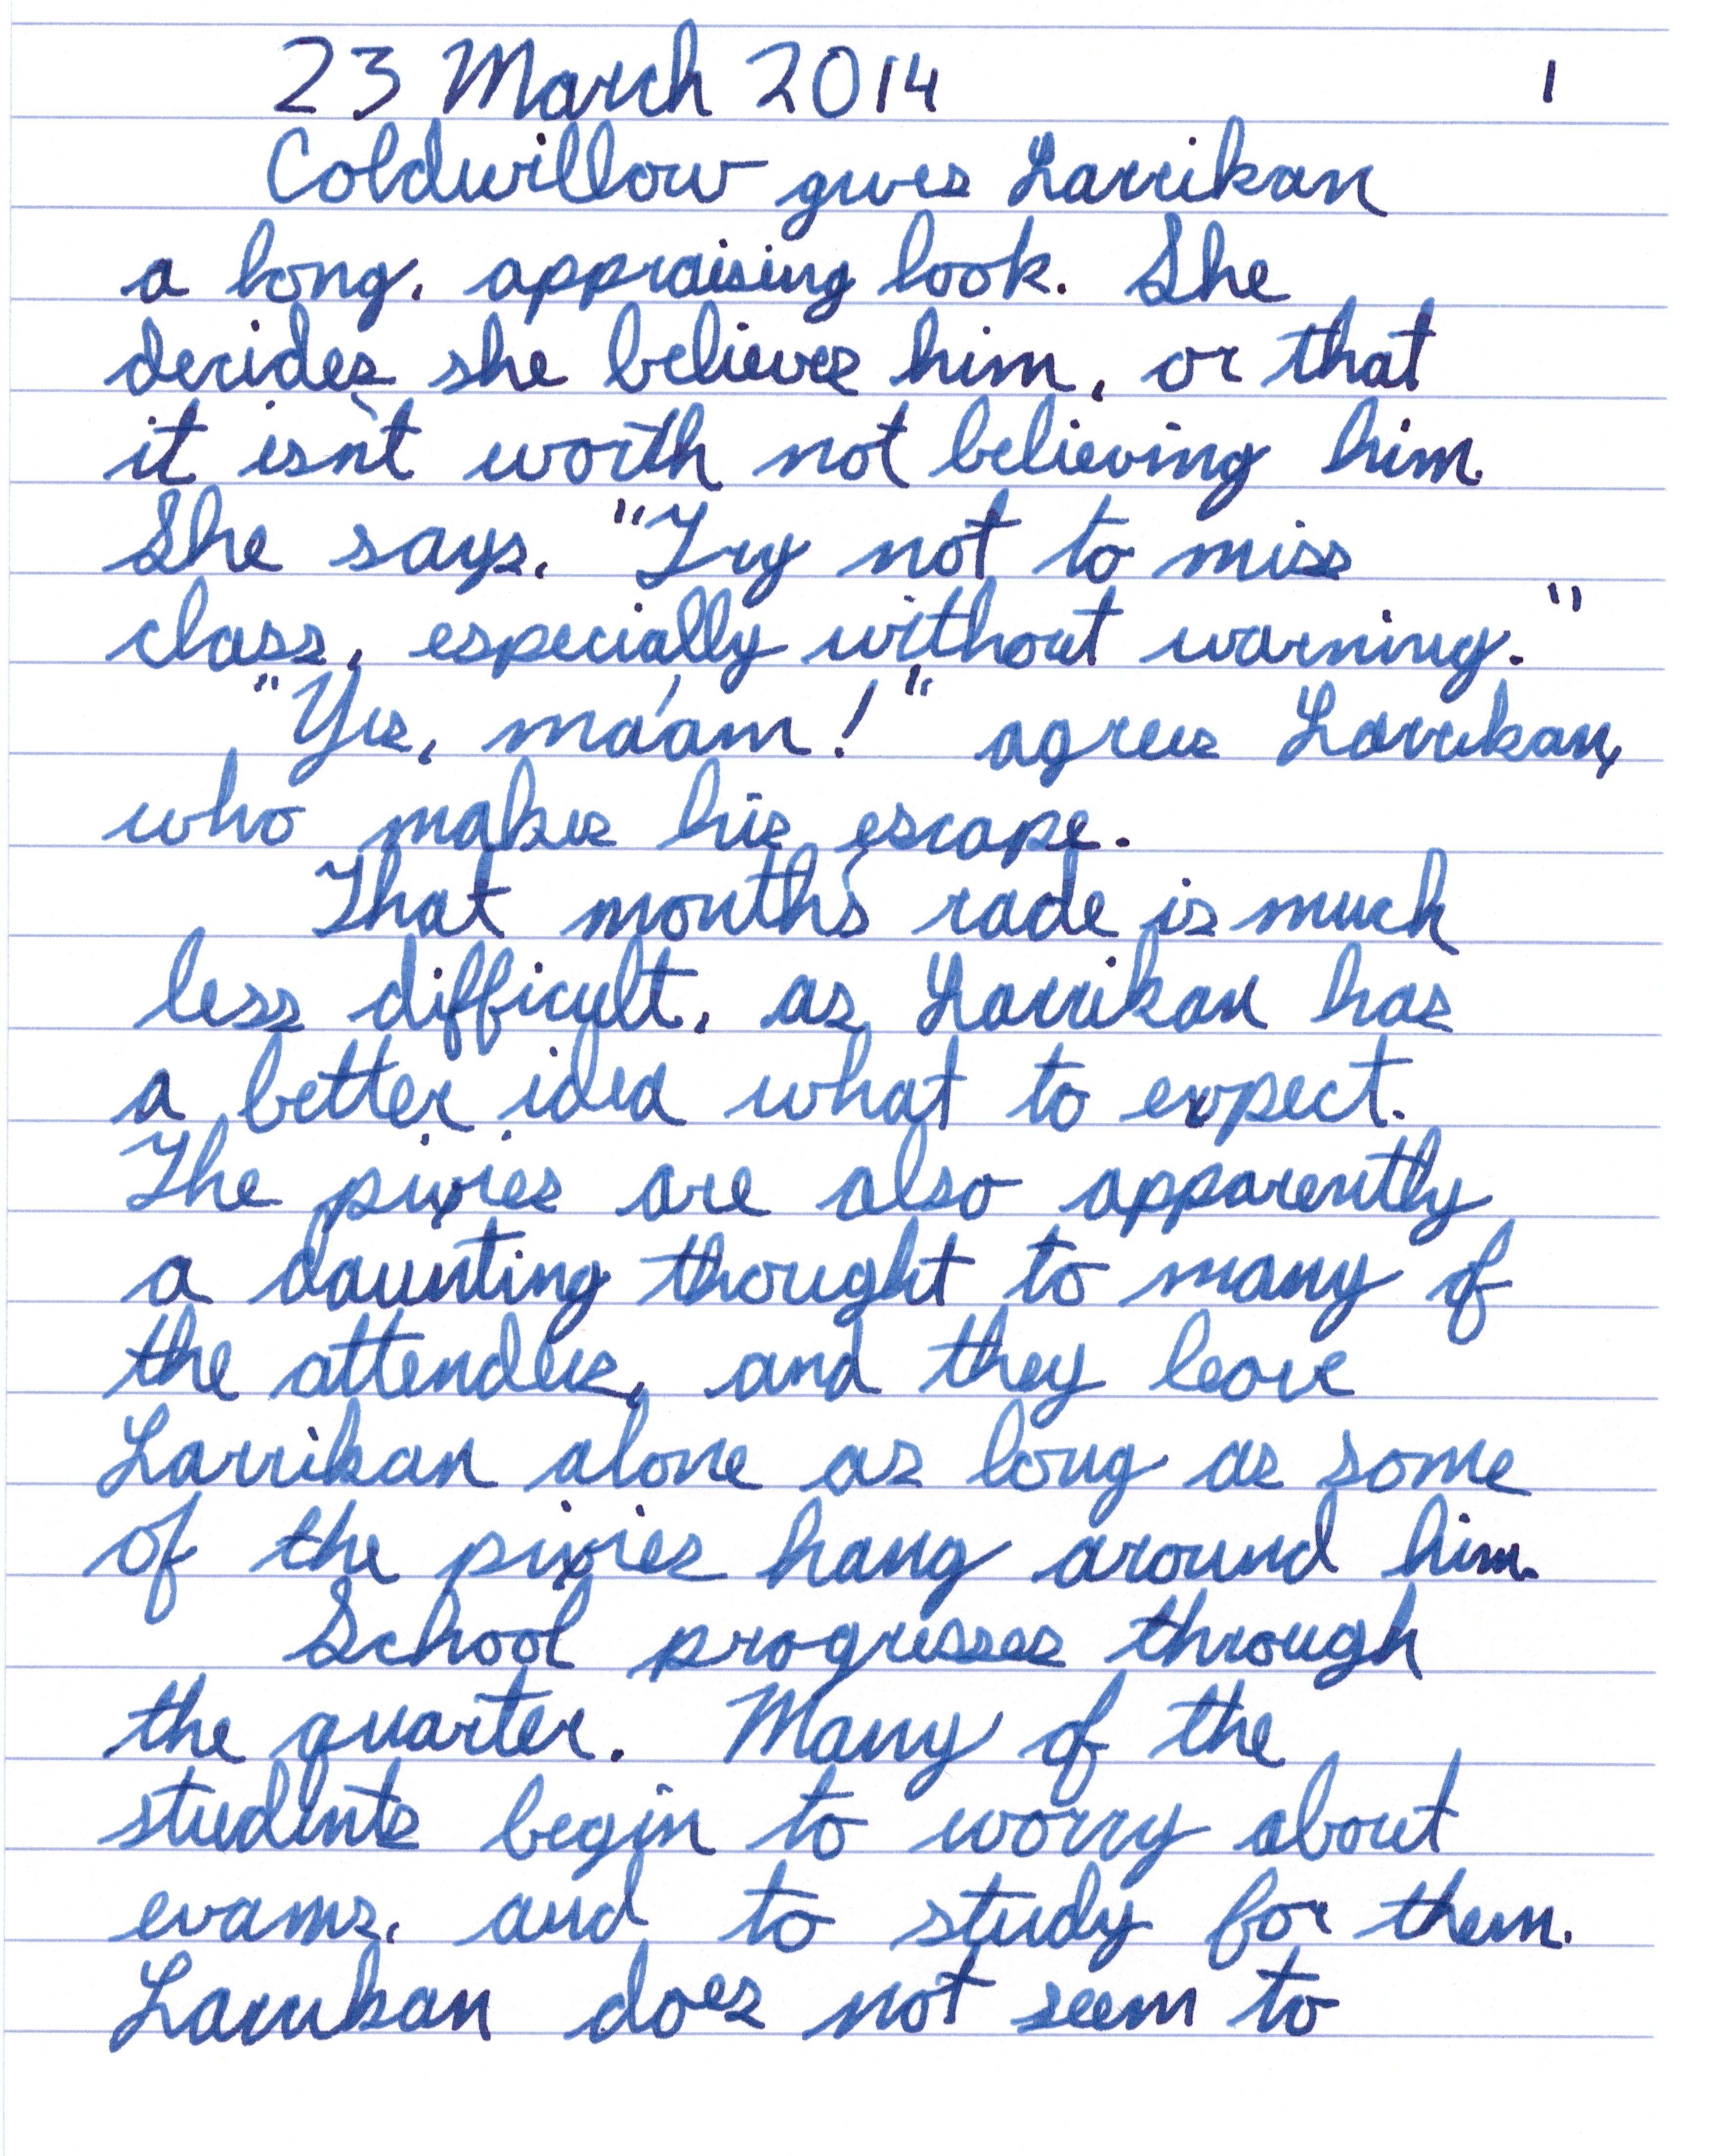 23 March 2014 1
Coldwillow gives Larrikan
a long, appraising look. She
decides she believes him, or that
it isn't worth not believing him.
She says, "Try not to miss
class, especially without warning."
"Yes, ma'am!" agrees Larrikan,
who makes his escape.
That month's rade is much
less difficult, as Larrikan has
a better idea what to expect.
The pixies are also apparently
a daunting thought to many of
the attendees, and they leave
Larrikan alone as long as some
of the pixies hang around him.
School progresses through
the quarter. Many of the
students begin to worry about
exams, and to study for them.
Larrikan does not seem to